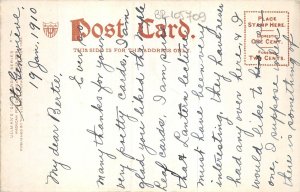 Post Card.
THIS SIDE IS FOR THE ADDRESS ONLY
PLACE
STAMP HERE
DOMESTIC
ONE CENT.
FOREIGN
TWO CENTS.
Ste Genevieve
19 Jan, 1910
My dear Bertie.
Ever so
many thanks for your
very pretty cards, I am
glad you liked the Maple
Leaf cards, I am
that Lantern lecture
must have been very
interesting. they have
had any over here, I
would like to
one, I suppose
there is something